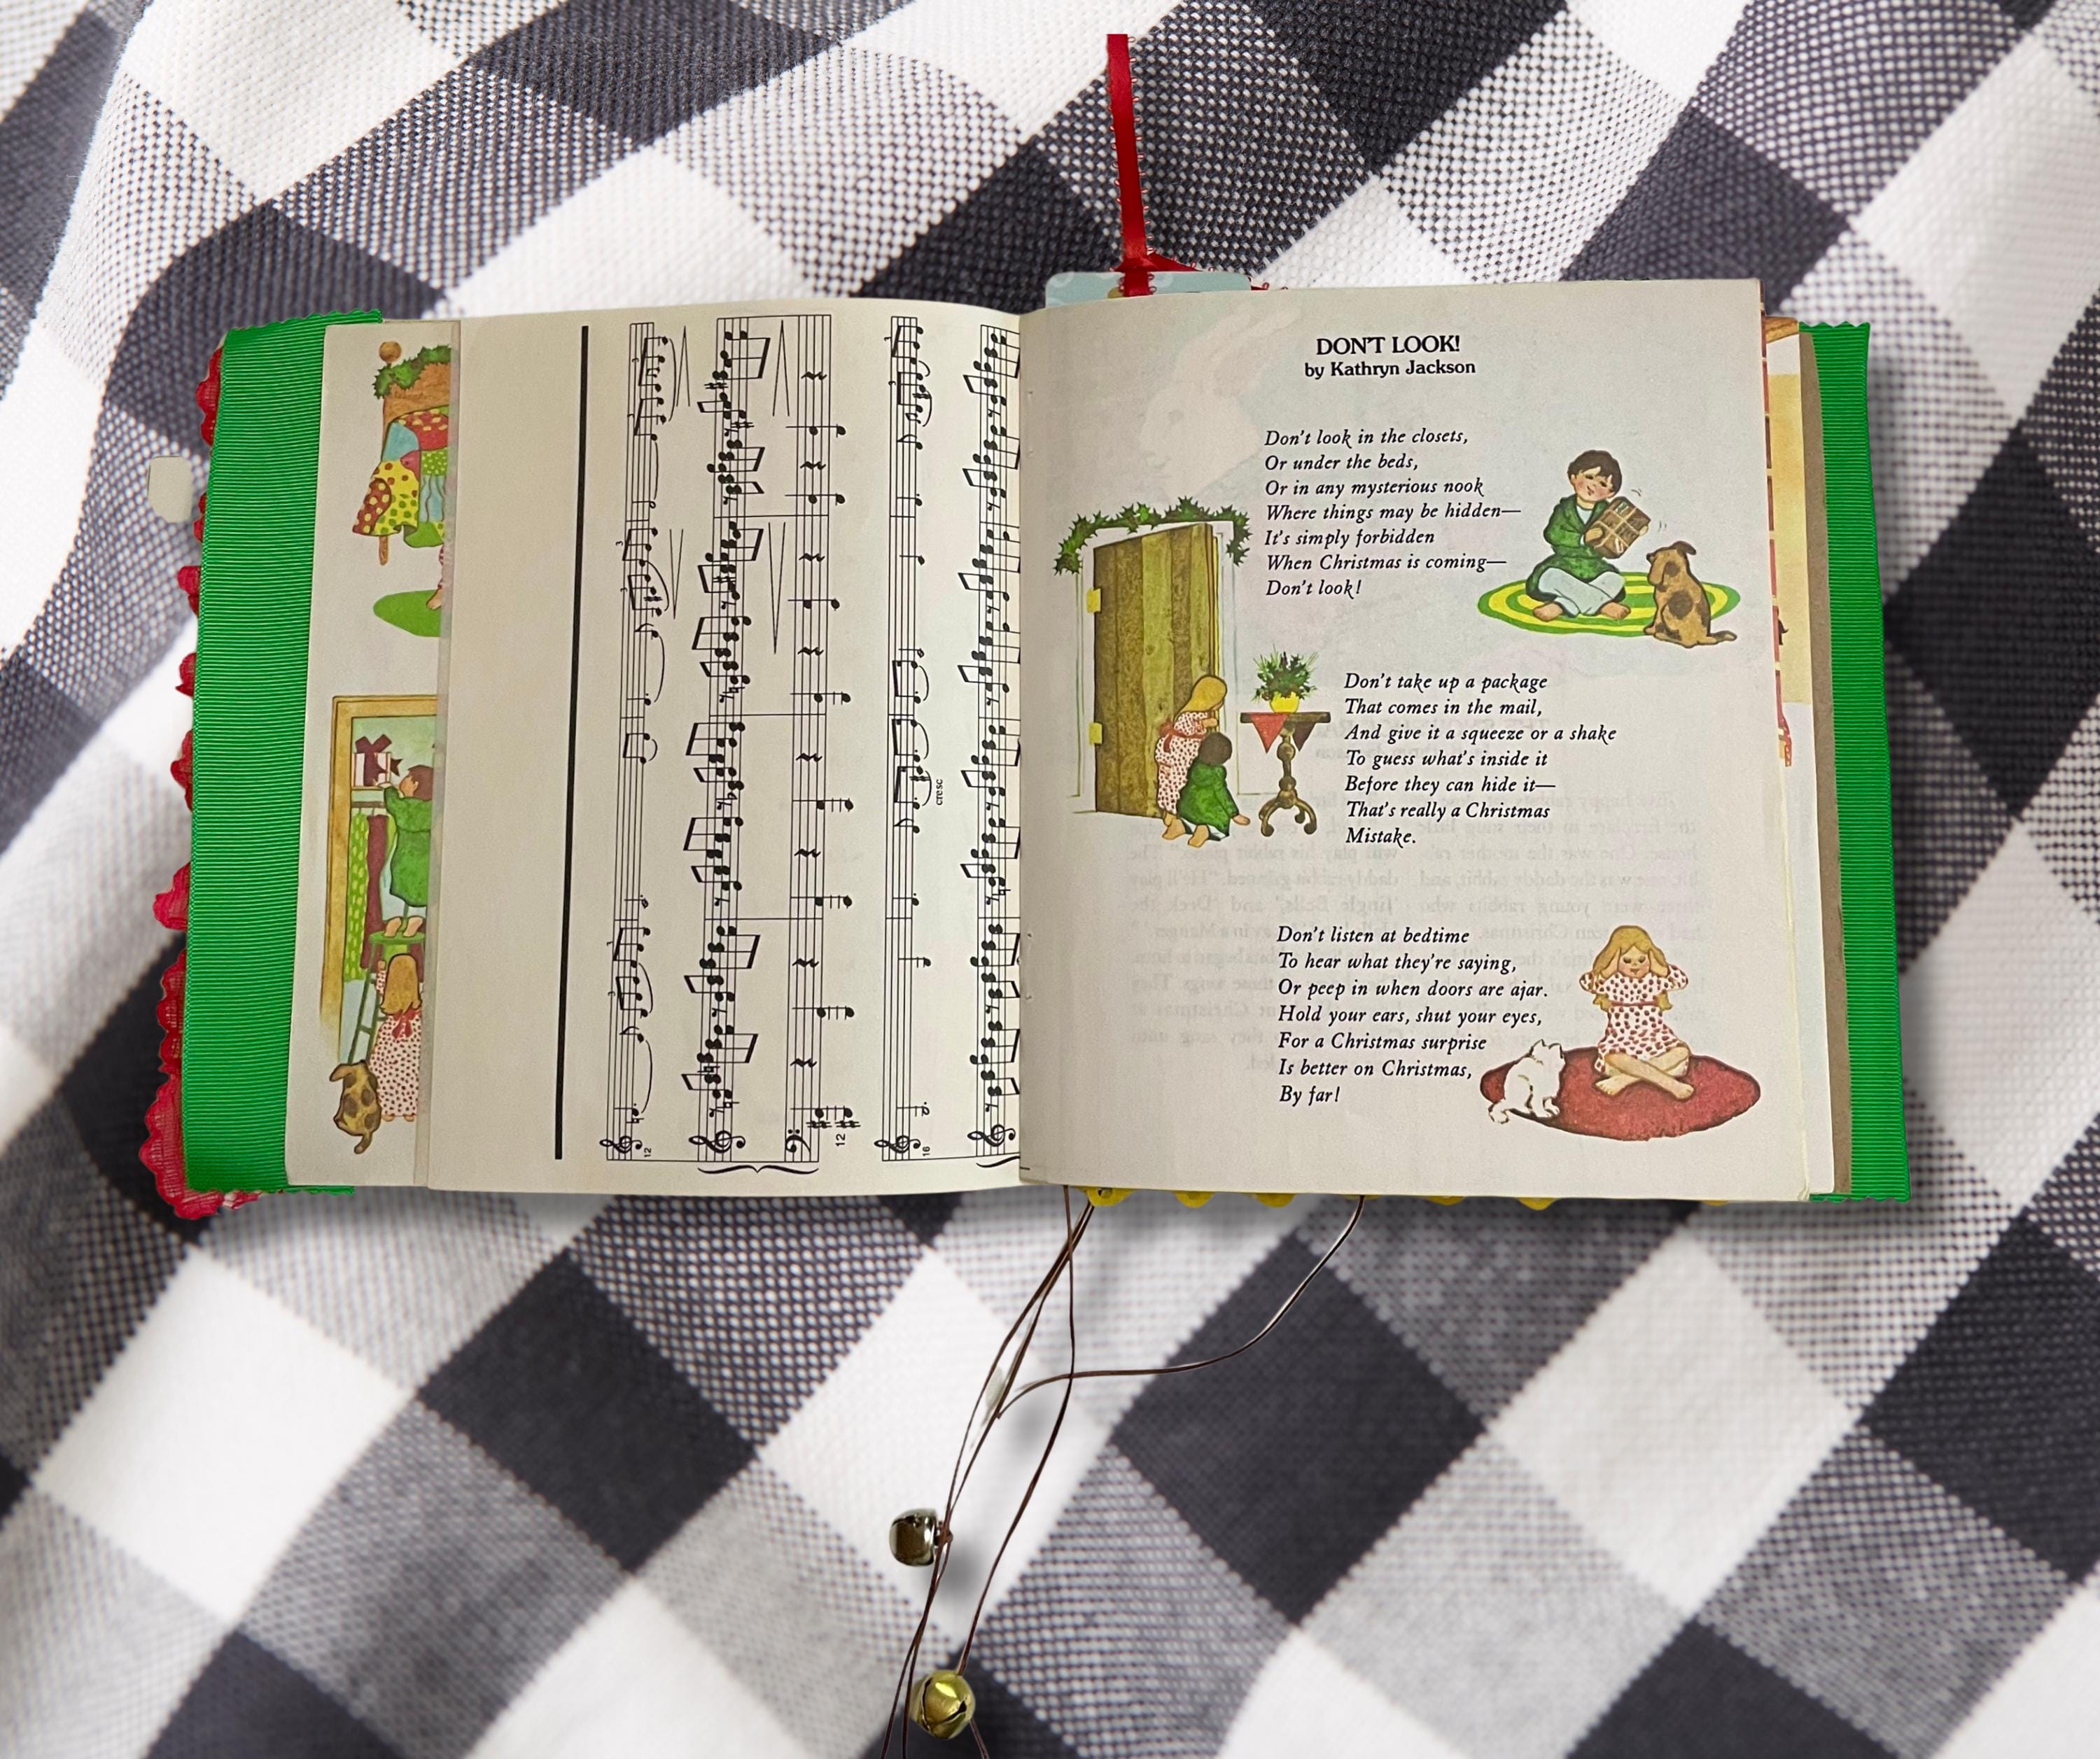 3
3
3
12
cresc
16
DON'T LOOK!
by Kathryn Jackson
Don't look in the closets,
Or under the beds,
Or in any mysterious nook
Where things may be hidden—
It's simply forbidden
When Christmas is coming—
Don't look!
Don't take up a package
That comes in the mail,
And give it a squeeze or a shake
To guess what's inside it
Before they can hide it—
That's really a Christmas
Mistake.
Don't listen at bedtime
To hear what they're saying,
Or peep in when doors are ajar.
Hold your ears, shut your eyes,
For a Christmas surprise
Is better on Christmas,
By far!